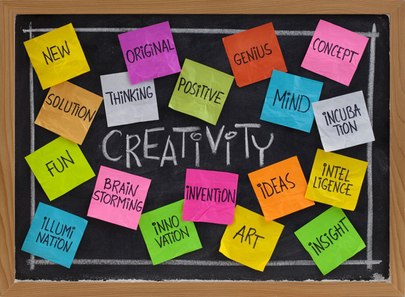 NEW
ORIGINAL
GENIUS
CONCEPT
SOLUTION
THINKING
POSITIVE
MiND
INCUBA
TION
CREATIVITY
FUN
BRAIN
STORMING
iNVENTION
iDEAS
iNTEL
LIGENCE
iLLUMI
NATION
iNNO
VATION
ART
iNSIGHT